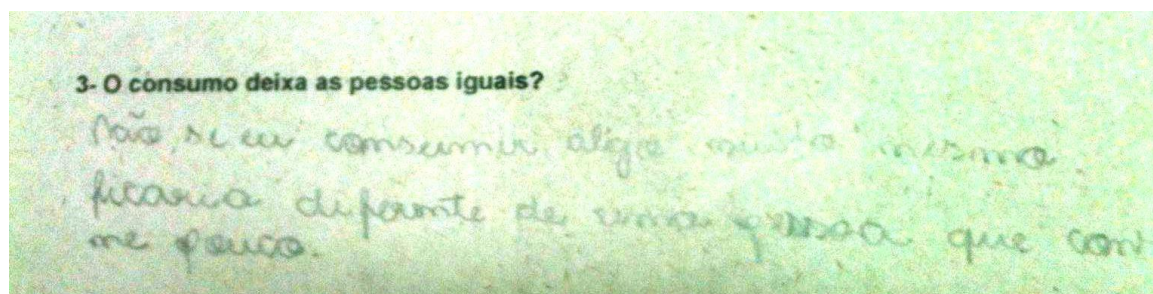 3- O consumo deixa as pessoas iguais?
Não, se eu consumir algo muito mesmo
ficaria diferente de uma pessoa que con
me pouco.